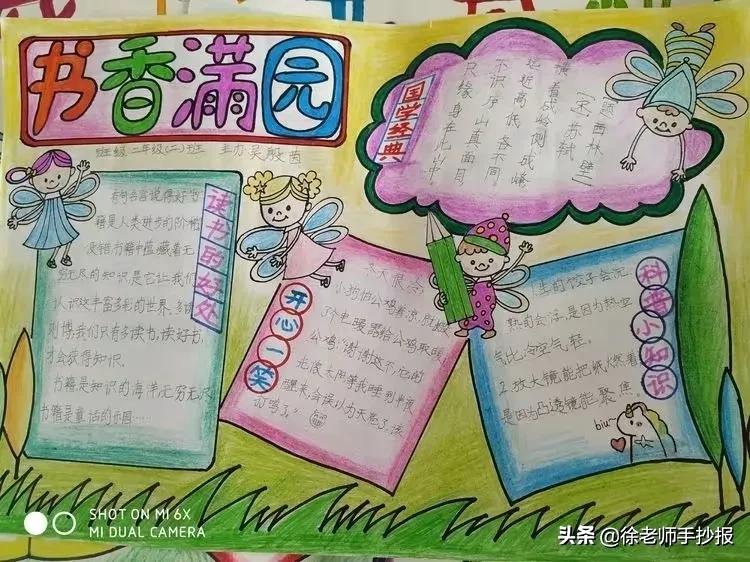 书香满园
班级 二年级(二)班 主办 吴殷茵
国学经典
题西林壁
[宋]苏轼
横看成岭侧成峰
远近高低各不同
不识庐山真面目
只缘身在此山中。
读书的好处
有句名言说得好书
籍是人类进步的阶梯
书籍中蕴藏着无
穷无尽的知识是它让我们
认识这丰富多彩的世界。多读
则博。我们只有多读书,读好书,
才会获得知识。
书籍是知识的海洋无穷无尽
书籍是童话的乐园……
开心一笑
冬天很冷,
小狗怕公鸡着凉,所以搬
个电暖器给公鸡取暖
公鸡:"谢谢这个,它的
光波太闭等我睡到半夜
醒来,会误以为天亮了,该
打鸣了。"
科普小知识
1生的饺子会沉
熟的会浮,是因为热空
气比冷空气轻。
2.放大镜能把纸火然着
是因为凸透镜能聚焦。
biu~
SHOT ON MI 6X
MI DUAL CAMERA
头条@徐老师手抄报